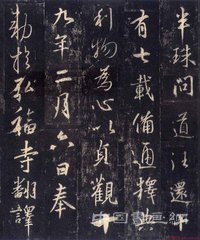 半珠問道往還十
有七載備通釋典
利物為心以貞觀十
九年二月六日奉
勅於弘福寺翻譯